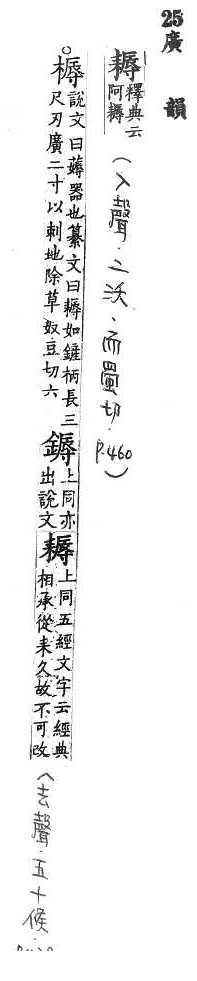 25 廣 韻
耨 釋典云阿耨 (入聲.二沃.而蜀切. P.460)
。槈 說文曰薅器也纂文曰耨如鏟柄長三尺刃廣二寸以刺地除草奴豆切六 鎒 上同亦出說文 耨 上同五經文字云經典相承從耒久故不可改 (去聲.五十候.